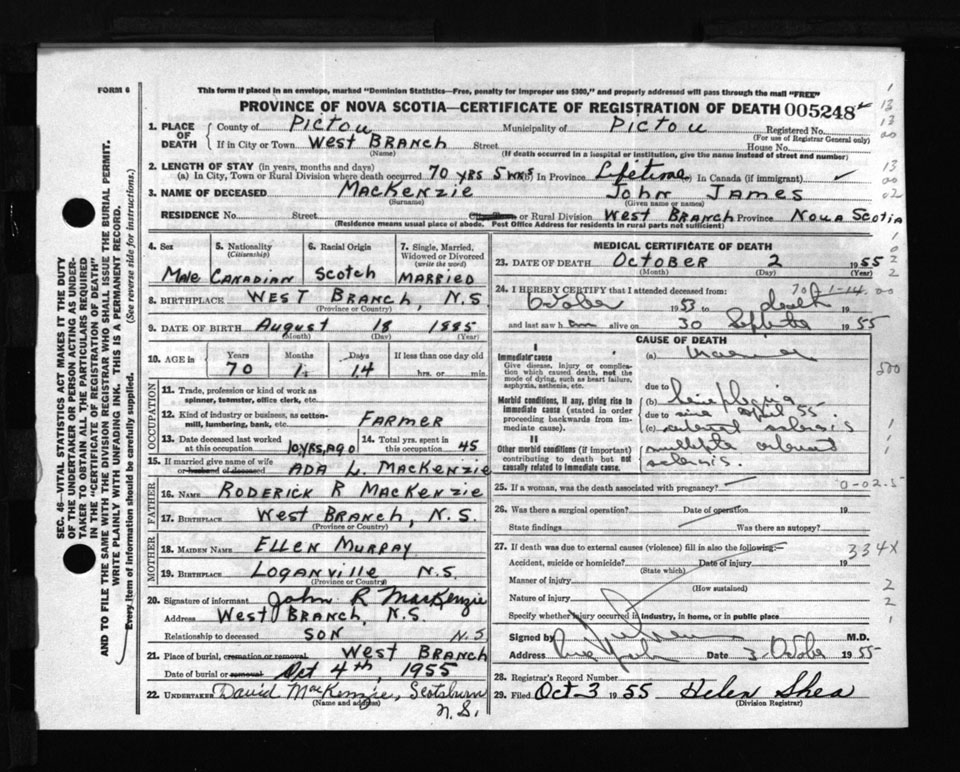 FORM 6
This form if placed in an envelope, marked "Dominion Statistics—Free, penalty for improper use $300," and properly addressed will pass through the mail "FREE"
PROVINCE OF NOVA SCOTIA—CERTIFICATE OF REGISTRATION OF DEATH 005248
1. PLACE OF DEATH County of Pictou Municipality of Pictou Registered No.
(For use of Registrar General only)
If in City or Town West Branch Street House No.
(Name) (If death occurred in a hospital or institution, give the name instead of street and number)
2. LENGTH OF STAY (in years, months and days)
(a) In City, Town or Rural Division where death occurred 70 yrs 5 wks In Province Lifetime In Canada (if immigrant)
3. NAME OF DECEASED MacKenzie John James
(Surname) (Given name or names)
RESIDENCE No. Street or Rural Division West Branch Province Nova Scotia
(Residence means usual place of abode. Post Office Address for residents in rural parts not sufficient)
4. Sex Male
5. Nationality (Citizenship) Canadian
6. Racial Origin Scotch
7. Single, Married, Widowed or Divorced (write the word) Married
8. BIRTHPLACE West Branch, N.S.
(Province or Country)
9. DATE OF BIRTH August 18 1885
(Month) (Day) (Year)
10. AGE in Years Months Days If less than one day old
70 1 14 hrs. or min.
OCCUPATION
11. Trade, profession or kind of work as spinner, teamster, office clerk, etc.
12. Kind of industry or business, as cotton-mill, lumbering, bank, etc. Farmer
13. Date deceased last worked at this occupation 10 yrs ago
14. Total yrs. spent in this occupation 45
15. If married give name of wife or husband of deceased Ada L. MacKenzie
FATHER
16. NAME Roderick R MacKenzie
17. Birthplace West Branch, N.S.
(Province or Country)
MOTHER
18. MAIDEN NAME Ellen Murray
19. Birthplace Loganville N.S.
(Province or Country)
20. Signature of informant John R MacKenzie
Address West Branch, N.S.
Relationship to deceased Son N.S.
21. Place of burial, cremation or removal West Branch
Date of burial or removal Oct 4th, 1955
22. UNDERTAKER David MacKenzie, Scotsburn
(Name and address) N.S.
MEDICAL CERTIFICATE OF DEATH
23. DATE OF DEATH October 2 1955
(Month) (Day) (Year)
24. I HEREBY CERTIFY that I attended deceased from: 70 1-14
October 1953 death 19
and last saw him alive on 30 September 1955
CAUSE OF DEATH
I
Immediate cause (a)
Give disease, injury or complication which caused death, not the mode of dying, such as heart failure, asphyxia, asthenia, etc.
due to
Morbid conditions, if any, giving rise to immediate cause (stated in order proceeding backwards from immediate cause).
(b) hemiplegia
due to since April 55
(c) sclerosis
II
Other morbid conditions (if important) contributing to death but not causally related to immediate cause.
multiple
sclerosis.
25. If a woman, was the death associated with pregnancy?
26. Was there a surgical operation? Date of operation 19
State findings Was there an autopsy?
27. If death was due to external causes (violence) fill in also the following:— 334X
Accident, suicide or homicide? Date of injury 19
(State which)
Manner of injury
(How sustained)
Nature of injury
Specify whether injury occurred in industry, in home, or in public place
Signed by M.D.
Address Date 3 October 1955
28. Registrar's Record Number
29. Filed Oct 3 1955 Helen Shea
(Division Registrar)
SEC. 46—VITAL STATISTICS ACT MAKES IT THE DUTY
OF THE UNDERTAKER OR PERSON ACTING AS UNDER-
TAKER TO OBTAIN ALL THE PARTICULARS REQUIRED
IN THE "CERTIFICATE OF REGISTRATION OF DEATH"
AND TO FILE THE SAME WITH THE DIVISION REGISTRAR WHO SHALL ISSUE THE BURIAL PERMIT.
WRITE PLAINLY WITH UNFADING INK. THIS IS A PERMANENT RECORD.
Every item of information should be carefully supplied. (See reverse side for instructions.)